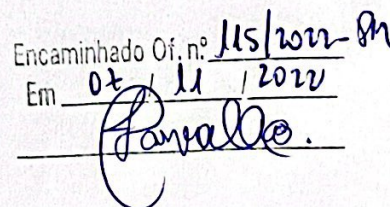 Encaminhado Of. n.º 115/2022-
Em 07 / 11 / 2022
Carvalho.